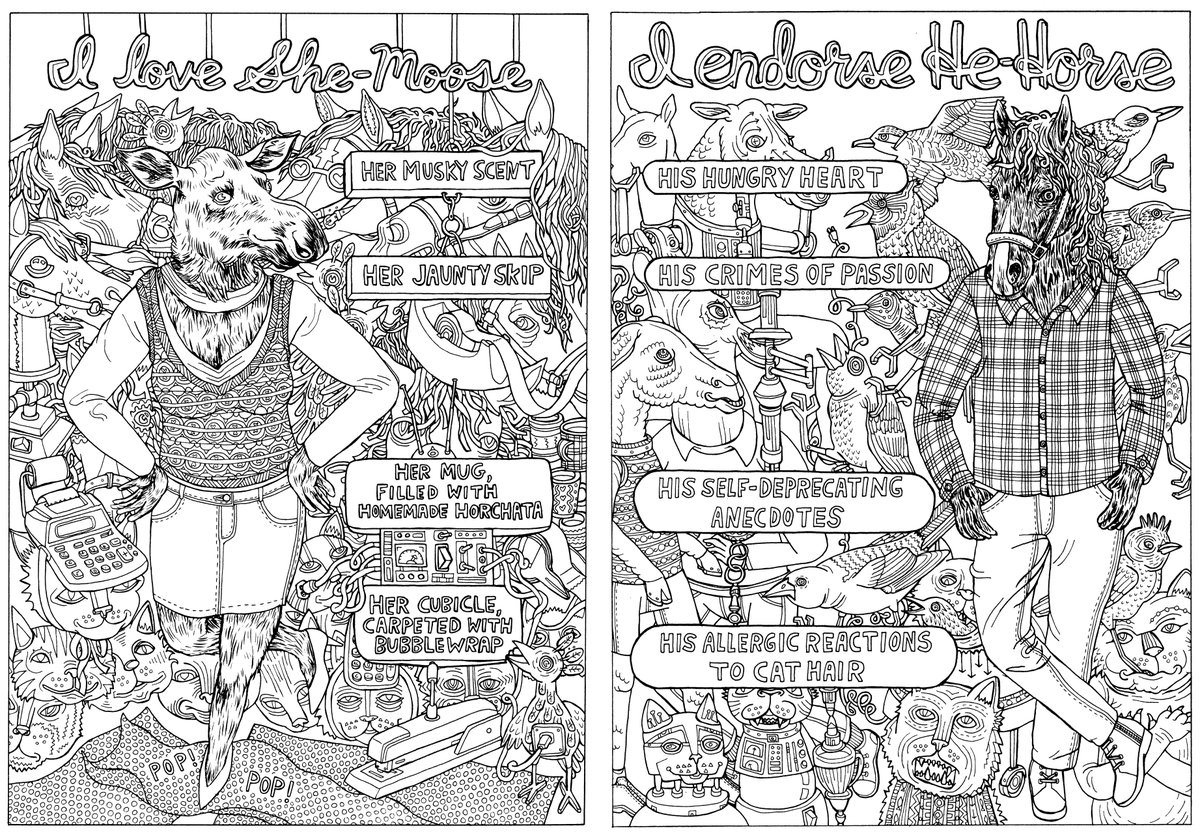 I love She-Moose
HER MUSKY SCENT
HER JAUNTY SKIP
HER MUG,
FILLED WITH
HOMEMADE HORCHATA
HER CUBICLE,
CARPETED WITH
BUBBLEWRAP
POP!
POP!
I endorse He-Horse
HIS HUNGRY HEART
HIS CRIMES OF PASSION
HIS SELF-DEPRECATING
ANECDOTES
HIS ALLERGIC REACTIONS
TO CAT HAIR